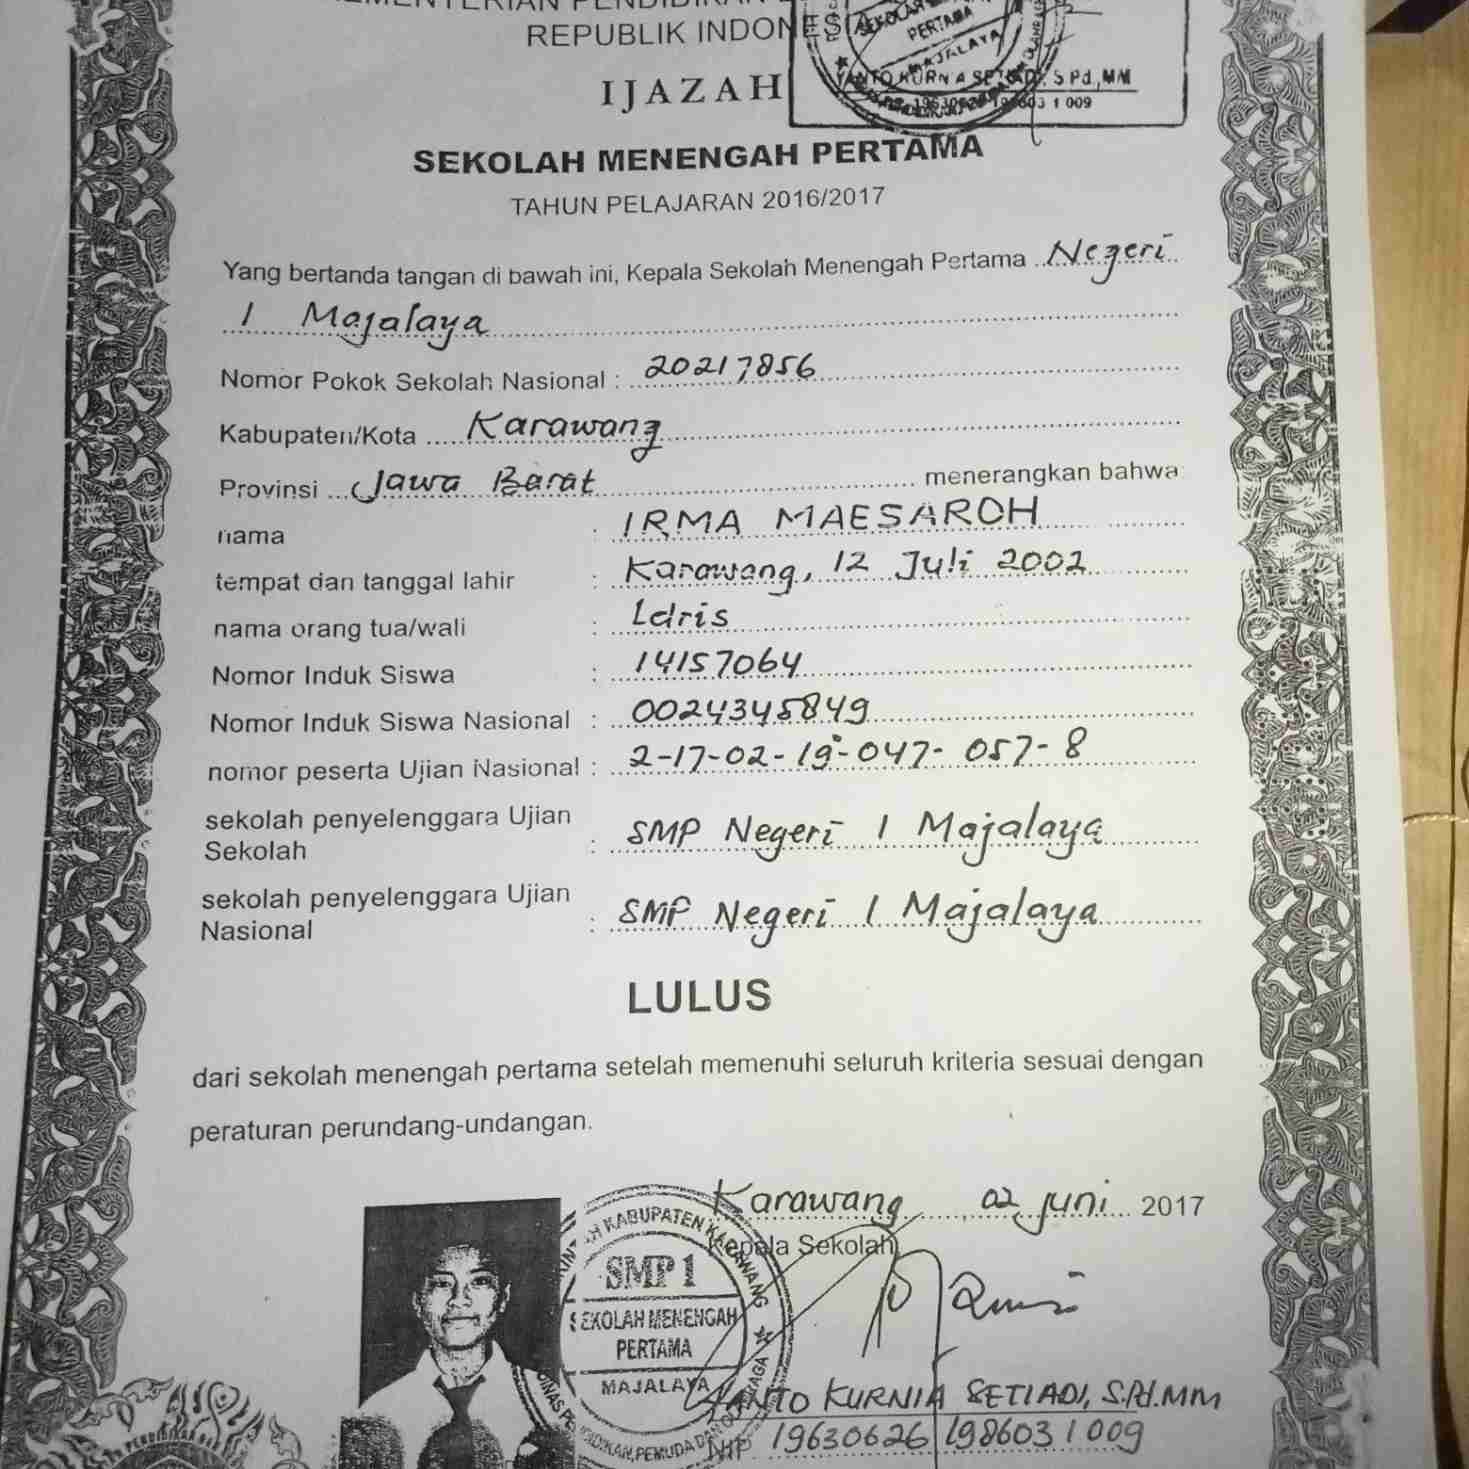 REPUBLIK INDONESIA
SEKOLAH
PERTAMA
MAJALAYA
YANTO KURNIA SETIADI, S.Pd.,MM
19630626 198603 1 009
IJAZAH
SEKOLAH MENENGAH PERTAMA
TAHUN PELAJARAN 2016/2017
Yang bertanda tangan di bawah ini, Kepala Sekolah Menengah Pertama Negeri
1 Majalaya
Nomor Pokok Sekolah Nasional : 20217856
Kabupaten/Kota Karawang
Provinsi Jawa Barat menerangkan bahwa
nama : IRMA MAESAROH
tempat dan tanggal lahir : Karawang, 12 Juli 2002
nama orang tua/wali : Idris
Nomor Induk Siswa : 14157064
Nomor Induk Siswa Nasional : 0024345849
nomor peserta Ujian Nasional : 2-17-02-19-047-057-8
sekolah penyelenggara Ujian
Sekolah : SMP Negeri 1 Majalaya
sekolah penyelenggara Ujian
Nasional : SMP Negeri 1 Majalaya
LULUS
dari sekolah menengah pertama setelah memenuhi seluruh kriteria sesuai dengan
peraturan perundang-undangan.
Karawang, 02 juni 2017
Kepala Sekolah,
KABUPATEN KARAWANG
SMP 1
SEKOLAH MENENGAH
PERTAMA
MAJALAYA
YANTO KURNIA SETIADI, S.Pd.MM
NIP 19630626 198603 1 009